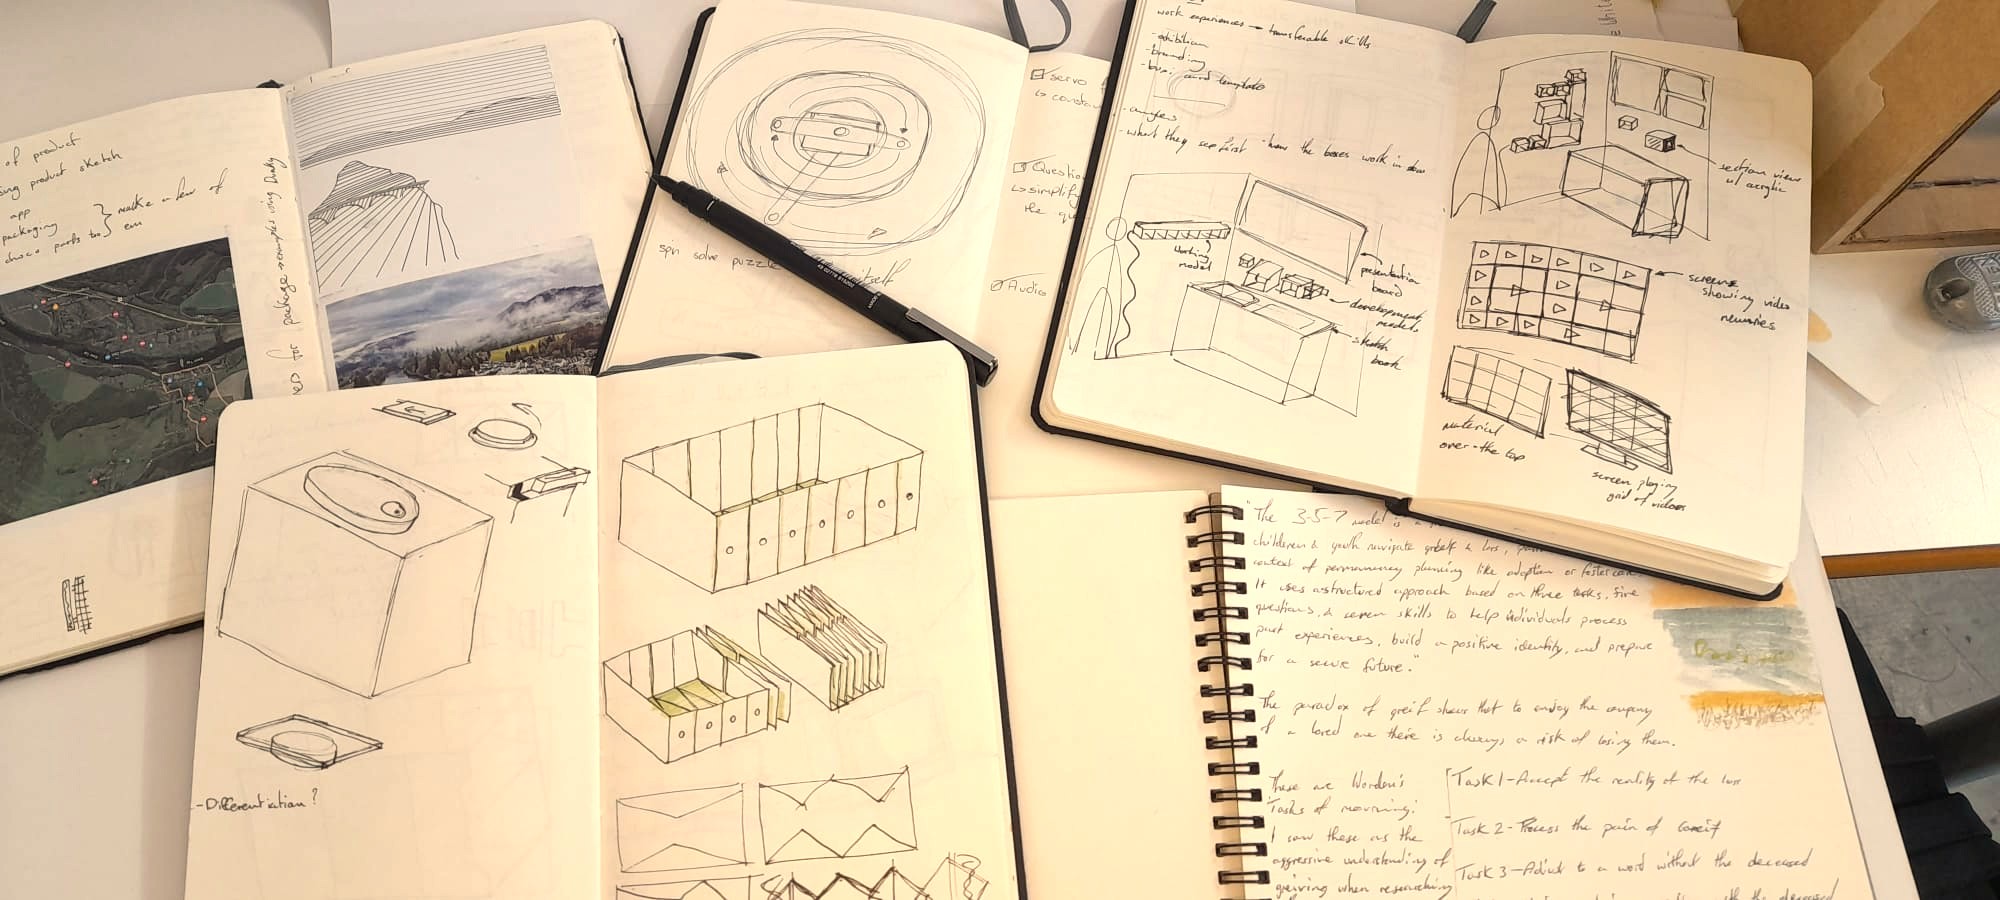 of product
product sketch
app
packaging
make a few of
em
spin solve puzzle
itself
servo
Questio
simplify
the qu
Audio
work experiences → transferable skills
- exhibition
- branding
card template
- what they see first
- how the boxes work in
working
model
presentation
board
development
models
sketch
book
section view
w/ acrylic
screens
showing video
memories
material
over the top
screen playing
grid of videos
- Differentiation?
"The 3-5-7 model is a
children & youth navigate greif & loss,
context of permanency planning like adoption or foster care.
It uses a structured approach based on three tasks, five
questions, & seven skills to help individuals process
past experiences, build a positive identity, and prepare
for a secure future."
The paradox of greif shows that to enjoy the company
of a loved one there is always a risk of losing them.
These are Worden's
Tasks of mourning:
I saw these as the
aggressive understanding of
greiving when researching
Task 1 - Accept the reality of the loss
Task 2 - Process the pain of Greif
Task 3 - Adjust to a word without the deceased
the deceased